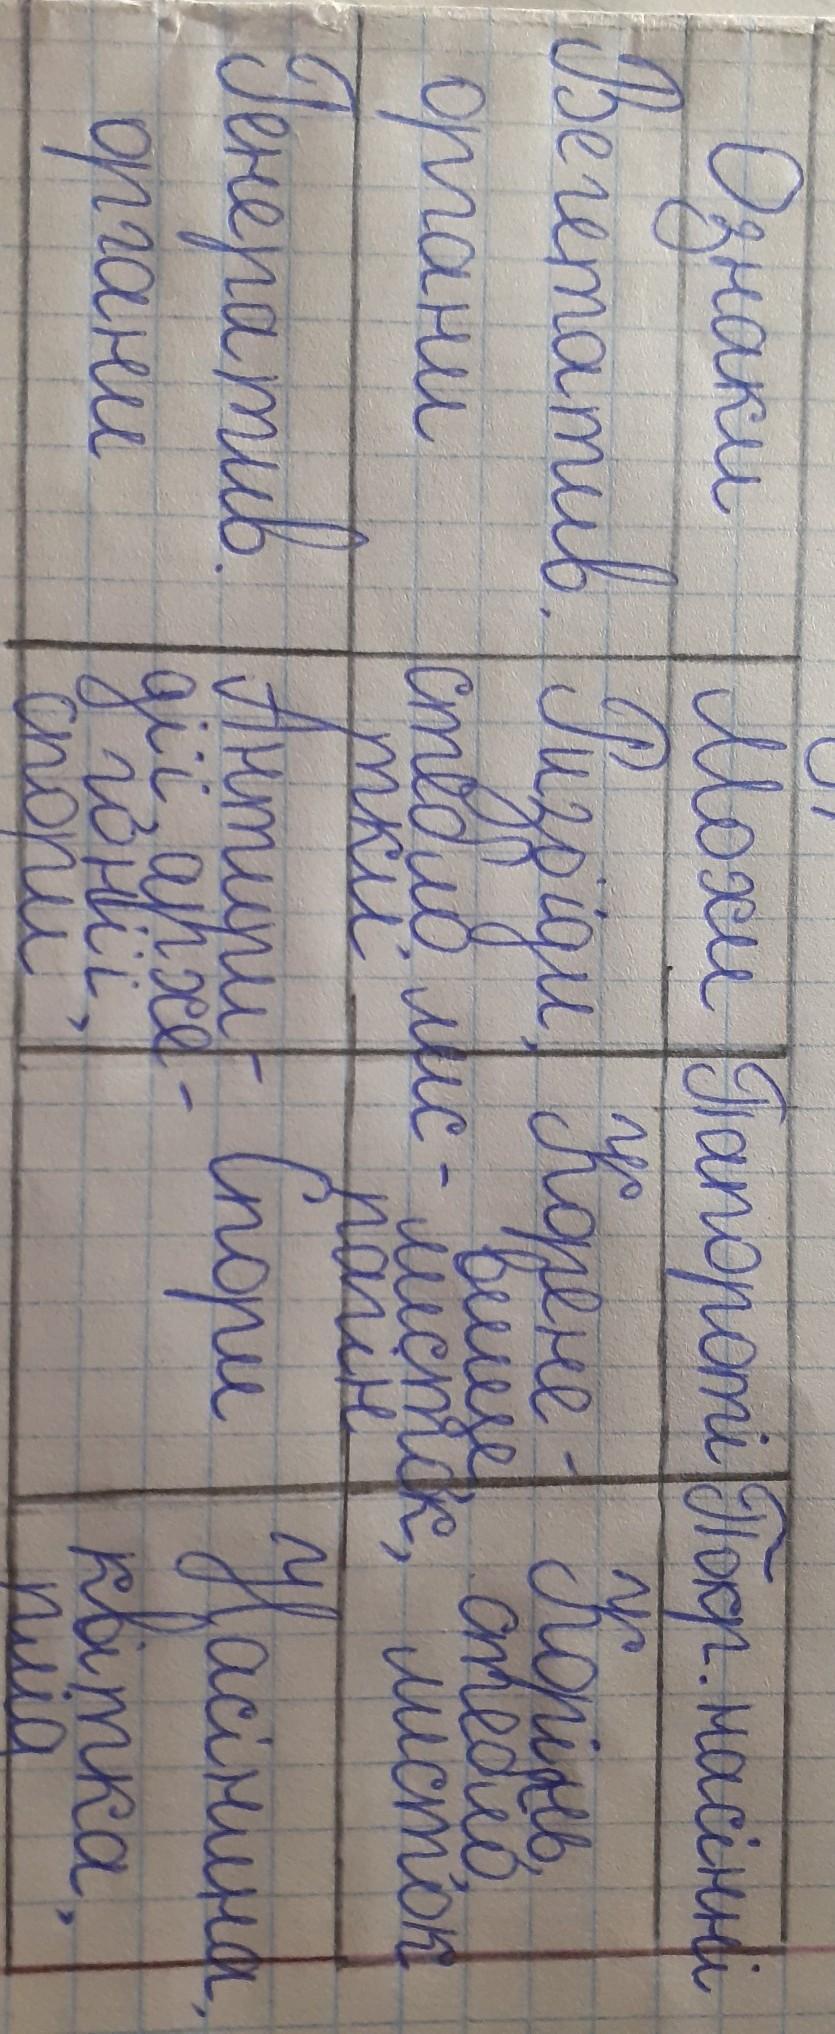 Ознаки
Мохи
Папороті
Покр. насінні
Вегетатив.
органи
Ризоїди,
стебло, лис-
тки.
Корене-
вище
листок,
пагін
Корінь,
стебло,
листок
Генератив.
органи
Антири-
дії, архе-
гонії,
спори
Спори
Насінина,
квітка,
плід